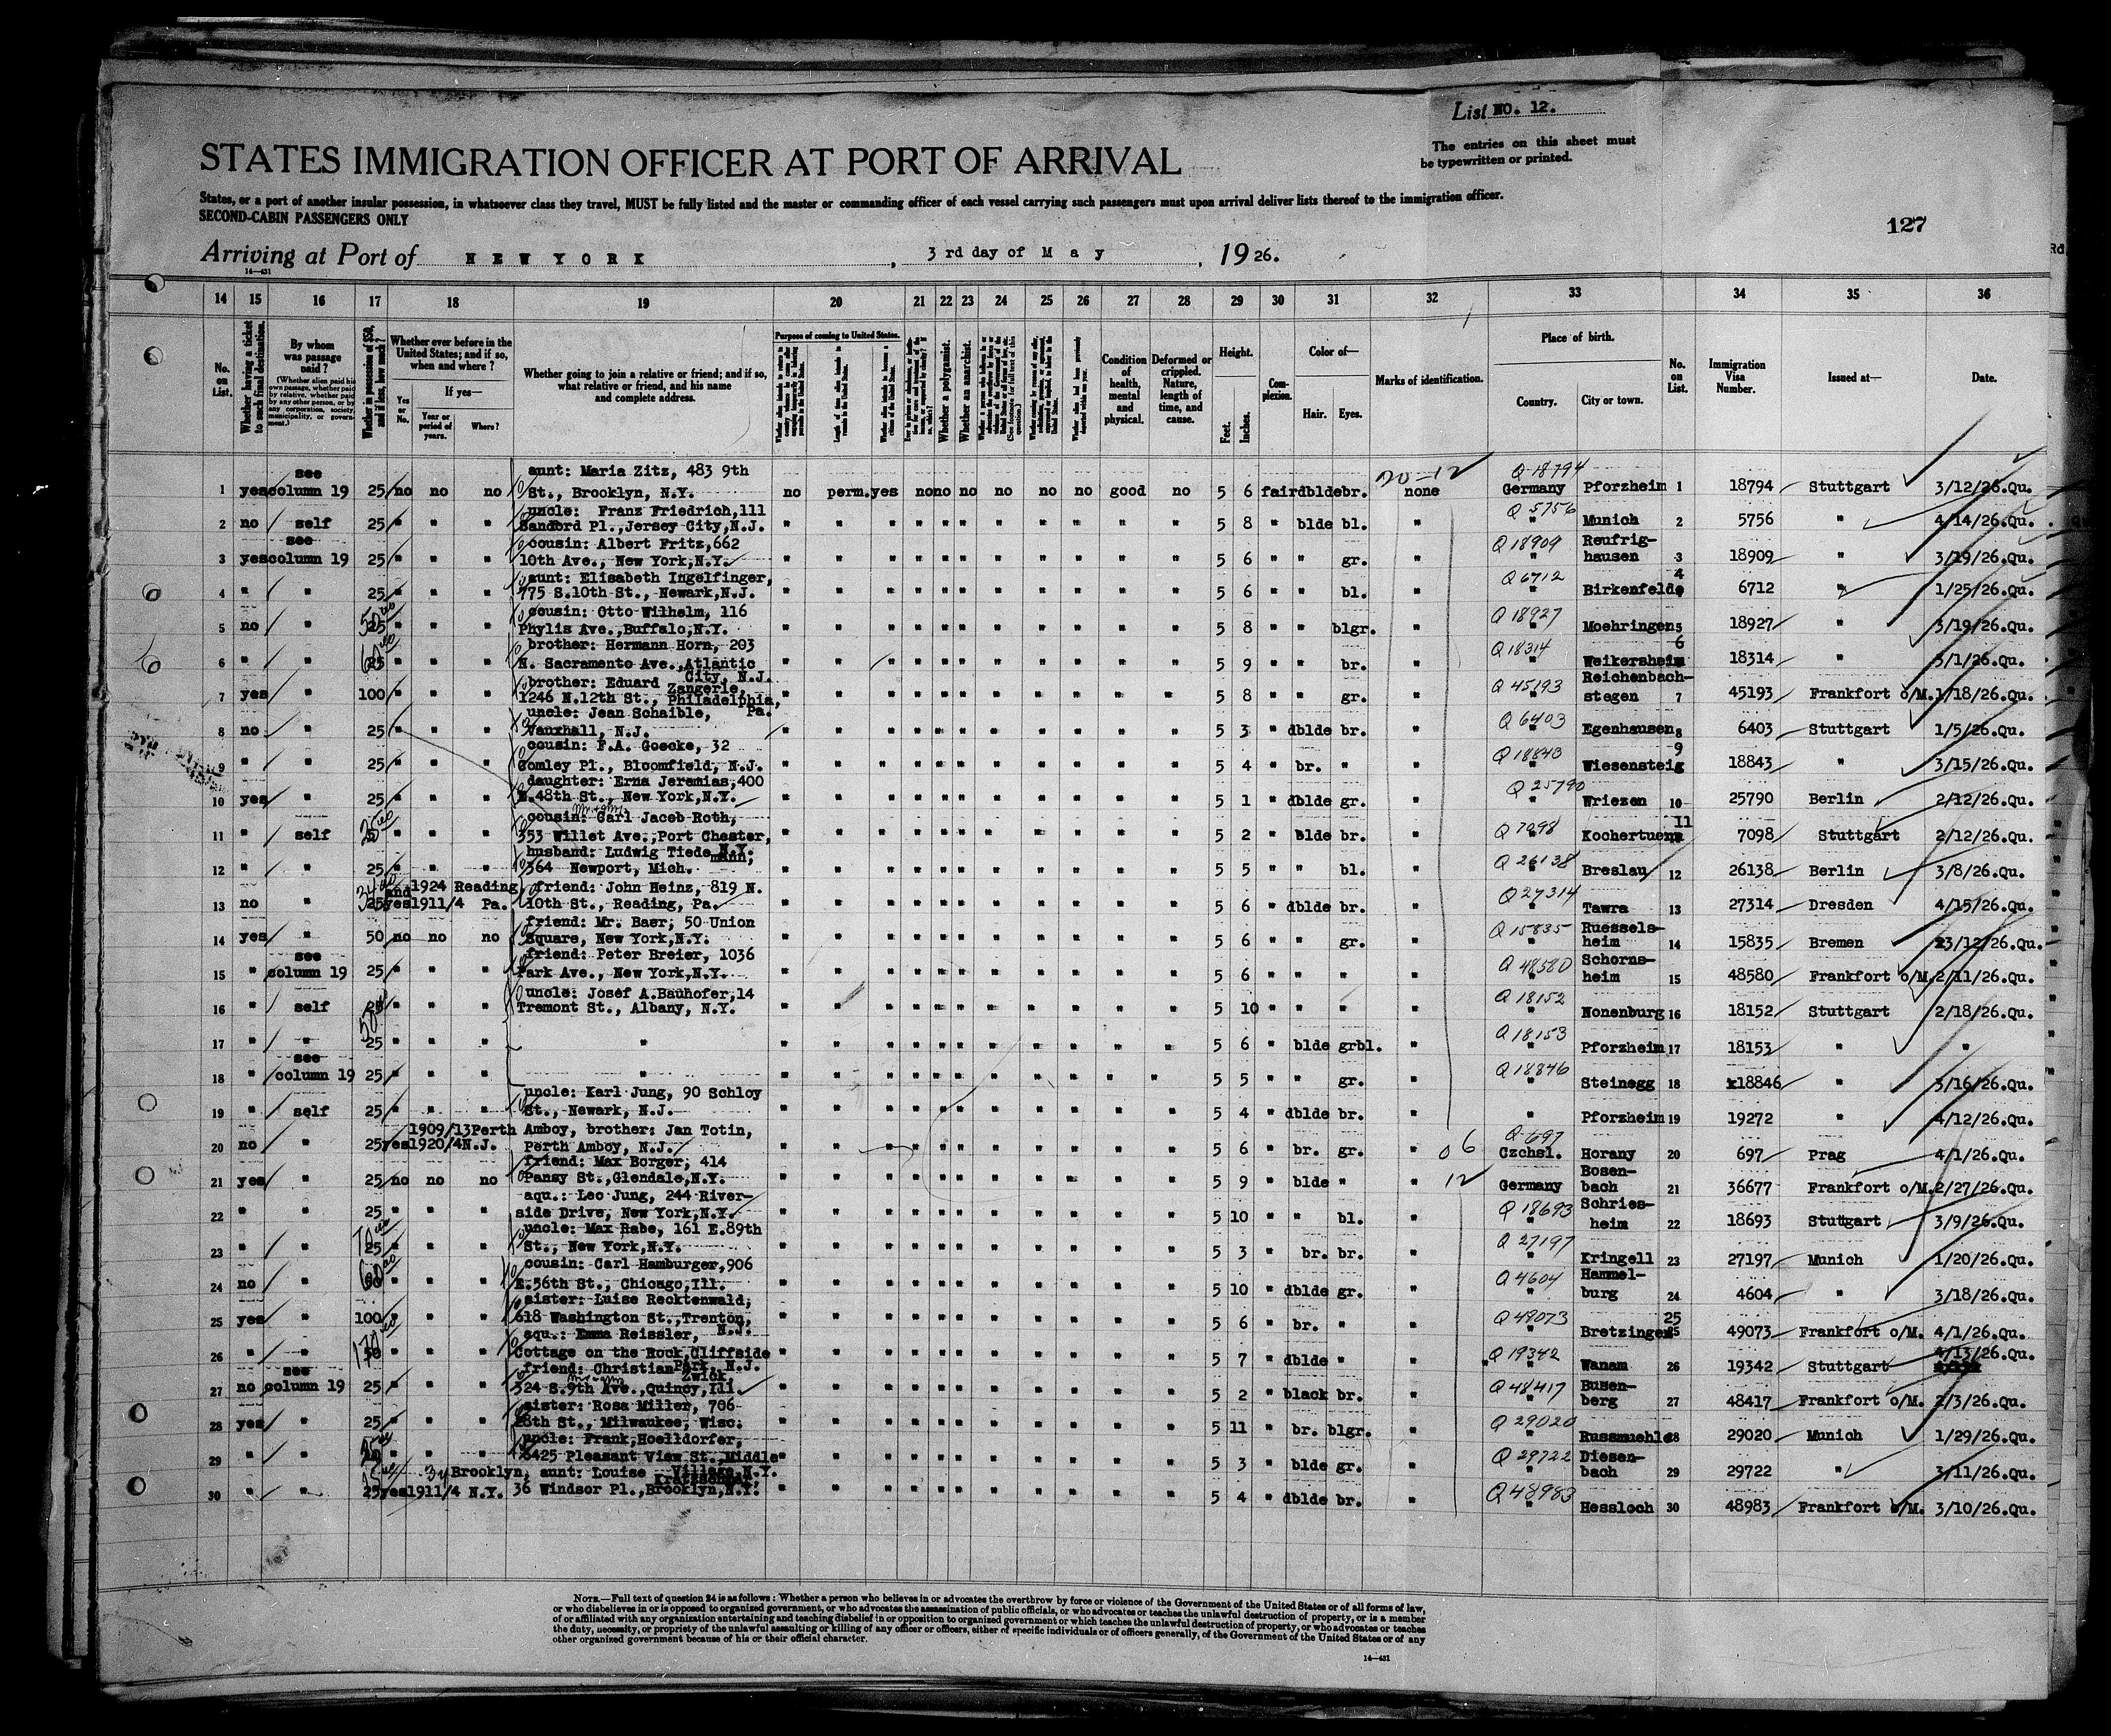 List NO. 12.
The entries on this sheet must
be typewritten or printed.
STATES IMMIGRATION OFFICER AT PORT OF ARRIVAL
States, or a port of another insular possession, in whatsoever class they travel, MUST be fully listed and the master or commanding officer of each vessel carrying such passengers must upon arrival deliver lists thereof to the immigration officer.
SECOND-CABIN PASSENGERS ONLY
127
Arriving at Port of N E W Y O R K , 3 rd day of M a y , 19 26.
14—431
14 15 16 17 18 19 20 21 22 23 24 25 26 27 28 29 30 31 32 33 34 35 36
No. on List.
Whether having a ticket to such final destination.
By whom was passage paid?
(Whether alien paid his own passage, whether paid by relative, whether paid by any other person, or by any corporation, society, municipality, or government.)
Whether in possession of $50, and if less, how much?
Whether ever before in the United States; and if so, when and where?
If yes—
Yes or No.
Year or period of years.
Where?
Whether going to join a relative or friend; and if so, what relative or friend, and his name and complete address.
Purpose of coming to United States.
Whether a polygamist.
Whether an anarchist.
Condition of health, mental and physical.
Deformed or crippled. Nature, length of time, and cause.
Height.
Feet. Inches.
Complexion.
Color of—
Hair. Eyes.
Marks of identification.
Place of birth.
Country. City or town.
No. on List.
Immigration Visa Number.
Issued at—
Date.
20-12
1 yes see column 19 25 no no no aunt: Maria Zitz, 483 9th St., Brooklyn, N.Y. no perm. yes no no no no no no good no 5 6 fair dblde br. none Q 18794 Germany Pforzheim 1 18794 Stuttgart 3/12/26.Qu.
2 no self 25 " " " uncle: Franz Friedrich,111 Sandford Pl.,Jersey City,N.J. " " " " " " " " " " " 5 8 " blde bl. " Q 5756 " Munich 2 5756 " 4/14/26.Qu.
3 yes see column 19 25 " " " cousin: Albert Fritz,662 10th Ave., New York,N.Y. " " " " " " " " " " " 5 6 " " gr. " Q 18909 " Reufrig-hausen 3 18909 " 3/19/26.Qu.
4 " " 25 " " " aunt: Elisabeth Ingelfinger, 775 S.10th St., Newark,N.J. " " " " " " " " " " " 5 6 " " bl. " Q 6712 " Birkenfeld 4 6712 " 1/25/26.Qu.
5 no " 25 50 " " " cousin: Otto Wilhelm, 116 Phylis Ave.,Buffalo,N.Y. " " " " " " " " " " " 5 8 " " blgr. " Q 18927 " Moehringen 5 18927 " 3/19/26.Qu.
6 " " 25 60 " " " brother: Hermann Horn, 203 N. Sacramento Ave.,Atlantic City, N.J. " " " " " " " " " " " 5 9 " " br. " Q 18314 " Weikersheim 6 18314 " 3/1/26.Qu.
7 yes " 100 " " " brother: Eduard Zangerle, 1246 N.12th St., Philadelphia, Pa. " " " " " " " " " " " 5 8 " " gr. " Q 45193 " Reichenbach-stegen 7 45193 Frankfort o/M. 1/18/26.Qu.
8 no " 25 " " " uncle: Jean Schaible, Vauxhall, N.J. " " " " " " " " " " " 5 3 " dblde br. " Q 6403 " Egenhausen 8 6403 Stuttgart 1/5/26.Qu.
9 " " 25 " " " cousin: F.A. Goecke, 32 Comley Pl., Bloomfield, N.J. " " " " " " " " " " " 5 4 " br. " " Q 18843 " Wiesensteig 9 18843 " 3/15/26.Qu.
10 yes " 25 " " " daughter: Erna Jeremias,400 E.48th St., New York,N.Y. " " " " " " " " " " " 5 1 " dblde gr. " Q 25790 " Wriezen 10 25790 Berlin 2/12/26.Qu.
11 " self 25 " " " cousin: Carl Jacob Roth, 353 Willet Ave.,Port Chester, N.Y. " " " " " " " " " " " 5 2 " blde br. " Q 7098 " Kochertuern 11 7098 Stuttgart 2/12/26.Qu.
12 " " 25 " " " husband: Ludwig Tiedemann, 364 Newport, Mich. " " " " " " " " " " " 5 5 " " bl. " Q 26138 " Breslau 12 26138 Berlin 3/8/26.Qu.
13 no " 25 yes and 1924 1911/4 Reading Pa. friend: John Heinz, 819 N. 10th St., Reading, Pa. " " " " " " " " " " " 5 6 " dblde br. " Q 27314 " Tawra 13 27314 Dresden 4/15/26.Qu.
14 yes " 50 no no no friend: Mr. Baer, 50 Union Square, New York,N.Y. " " " " " " " " " " " 5 6 " " gr. " Q 15835 " Ruessels-heim 14 15835 Bremen 3/12/26.Qu.
15 " see column 19 25 " " " friend: Peter Breier, 1036 Park Ave., New York,N.Y. " " " " " " " " " " " 5 6 " " " " Q 48580 " Schorns-heim 15 48580 Frankfort o/M. 2/11/26.Qu.
16 " self 25 50 " " " uncle: Josef A.Bauhofer,14 Tremont St., Albany, N.Y. " " " " " " " " " " " 5 10 " " " " Q 18152 " Nonenburg 16 18152 Stuttgart 2/18/26.Qu.
17 " " 25 " " " " " " " " " " " " " " " 5 6 " blde grbl. " Q 18153 " Pforzheim 17 18153 " "
18 " see column 19 25 " " " " " " " " " " " " " " " 5 5 " " gr. " Q 18846 " Steinegg 18 18846 " 3/16/26.Qu.
19 " self 25 " " " uncle: Karl Jung, 90 Schley St., Newark, N.J. " " " " " " " " " " " 5 4 " dblde br. " " Pforzheim 19 19272 " 4/12/26.Qu.
20 no " 25 yes 1909/13 1920/4 Perth Amboy, N.J. brother: Jan Totin, Perth Amboy, N.J. " " " " " " " " " " " 5 6 " br. gr. " 06 Q 697 Czchsl. Horany 20 697 Prag 4/1/26.Qu.
21 yes " 25 no no no friend: Max Borger, 414 Pansy St.,Glendale,N.Y. " " " " " " " " " " " 5 9 " blde " " 12 Germany Bosen-bach 21 36677 Frankfort o/M. 2/27/26.Qu.
22 " " 25 " " " aqu.: Leo Jung, 244 River-side Drive, New York,N.Y. " " " " " " " " " " " 5 10 " " bl. " Q 18693 " Schries-heim 22 18693 Stuttgart 3/9/26.Qu.
23 " " 25 70 " " " uncle: Max Rabe, 161 E.89th St., New York,N.Y. " " " " " " " " " " " 5 3 " br. br. " Q 27197 " Kringell 23 27197 Munich 1/20/26.Qu.
24 no " 60 " " " cousin: Carl Hamburger,906 E.56th St., Chicago,Ill. " " " " " " " " " " " 5 10 " dblde gr. " Q 4604 " Hammel-burg 24 4604 " 3/18/26.Qu.
25 yes " 100 " " " sister: Luise Recktenwald, 618 Washington St.,Trenton, N.J. " " " " " " " " " " " 5 6 " br. " " Q 49073 " Bretzingen 25 49073 Frankfort o/M. 4/1/26.Qu.
26 " " 50 170 " " " aqu.: Emma Reissler, Cottage on the Rock,Cliffside Park, N.J. " " " " " " " " " " " 5 7 " dblde " " Q 19342 " Wanam 26 19342 Stuttgart 4/13/26.Qu.
27 no see column 19 25 " " " friend: Christian Zwick, 324 S.9th Ave.,Quincy,Ill. " " " " " " " " " " " 5 2 " black br. " Q 48417 " Busen-berg 27 48417 Frankfort o/M. 2/3/26.Qu.
28 yes " 25 " " " sister: Rosa Miller, 706 28th St., Milwaukee, Wisc. " " " " " " " " " " " 5 11 " br. blgr. " Q 29020 " Russmuehle 28 29020 Munich 1/29/26.Qu.
29 " " " " " uncle: Frank Hoelldorfer, 6425 Pleasant View St.,Middle Village,N.Y. " " " " " " " " " " " 5 3 " blde gr. " Q 29722 " Diesen-bach 29 29722 " 3/11/26.Qu.
30 " " 25 yes 3y 1911/4 Brooklyn, N.Y. aunt: Louise Kratzschmar, 36 Windsor Pl.,Brooklyn,N.Y. " " " " " " " " " " " 5 4 " dblde br. " Q 48983 " Hessloch 30 48983 Frankfort o/M. 3/10/26.Qu.
NOTE.—Full text of question 24 is as follows: Whether a person who believes in or advocates the overthrow by force or violence of the Government of the United States or of all forms of law,
or who disbelieves in or is opposed to organized government, or who advocates the assassination of public officials, or who advocates or teaches the unlawful destruction of property, or is a member
of or affiliated with any organization entertaining and teaching disbelief in or opposition to organized government or which teaches the unlawful destruction of property, or who advocates or teaches
the duty, necessity, or propriety of the unlawful assaulting or killing of any officer or officers, either of specific individuals or of officers generally, of the Government of the United States or of any
other organized government because of his or their official character.
14—431